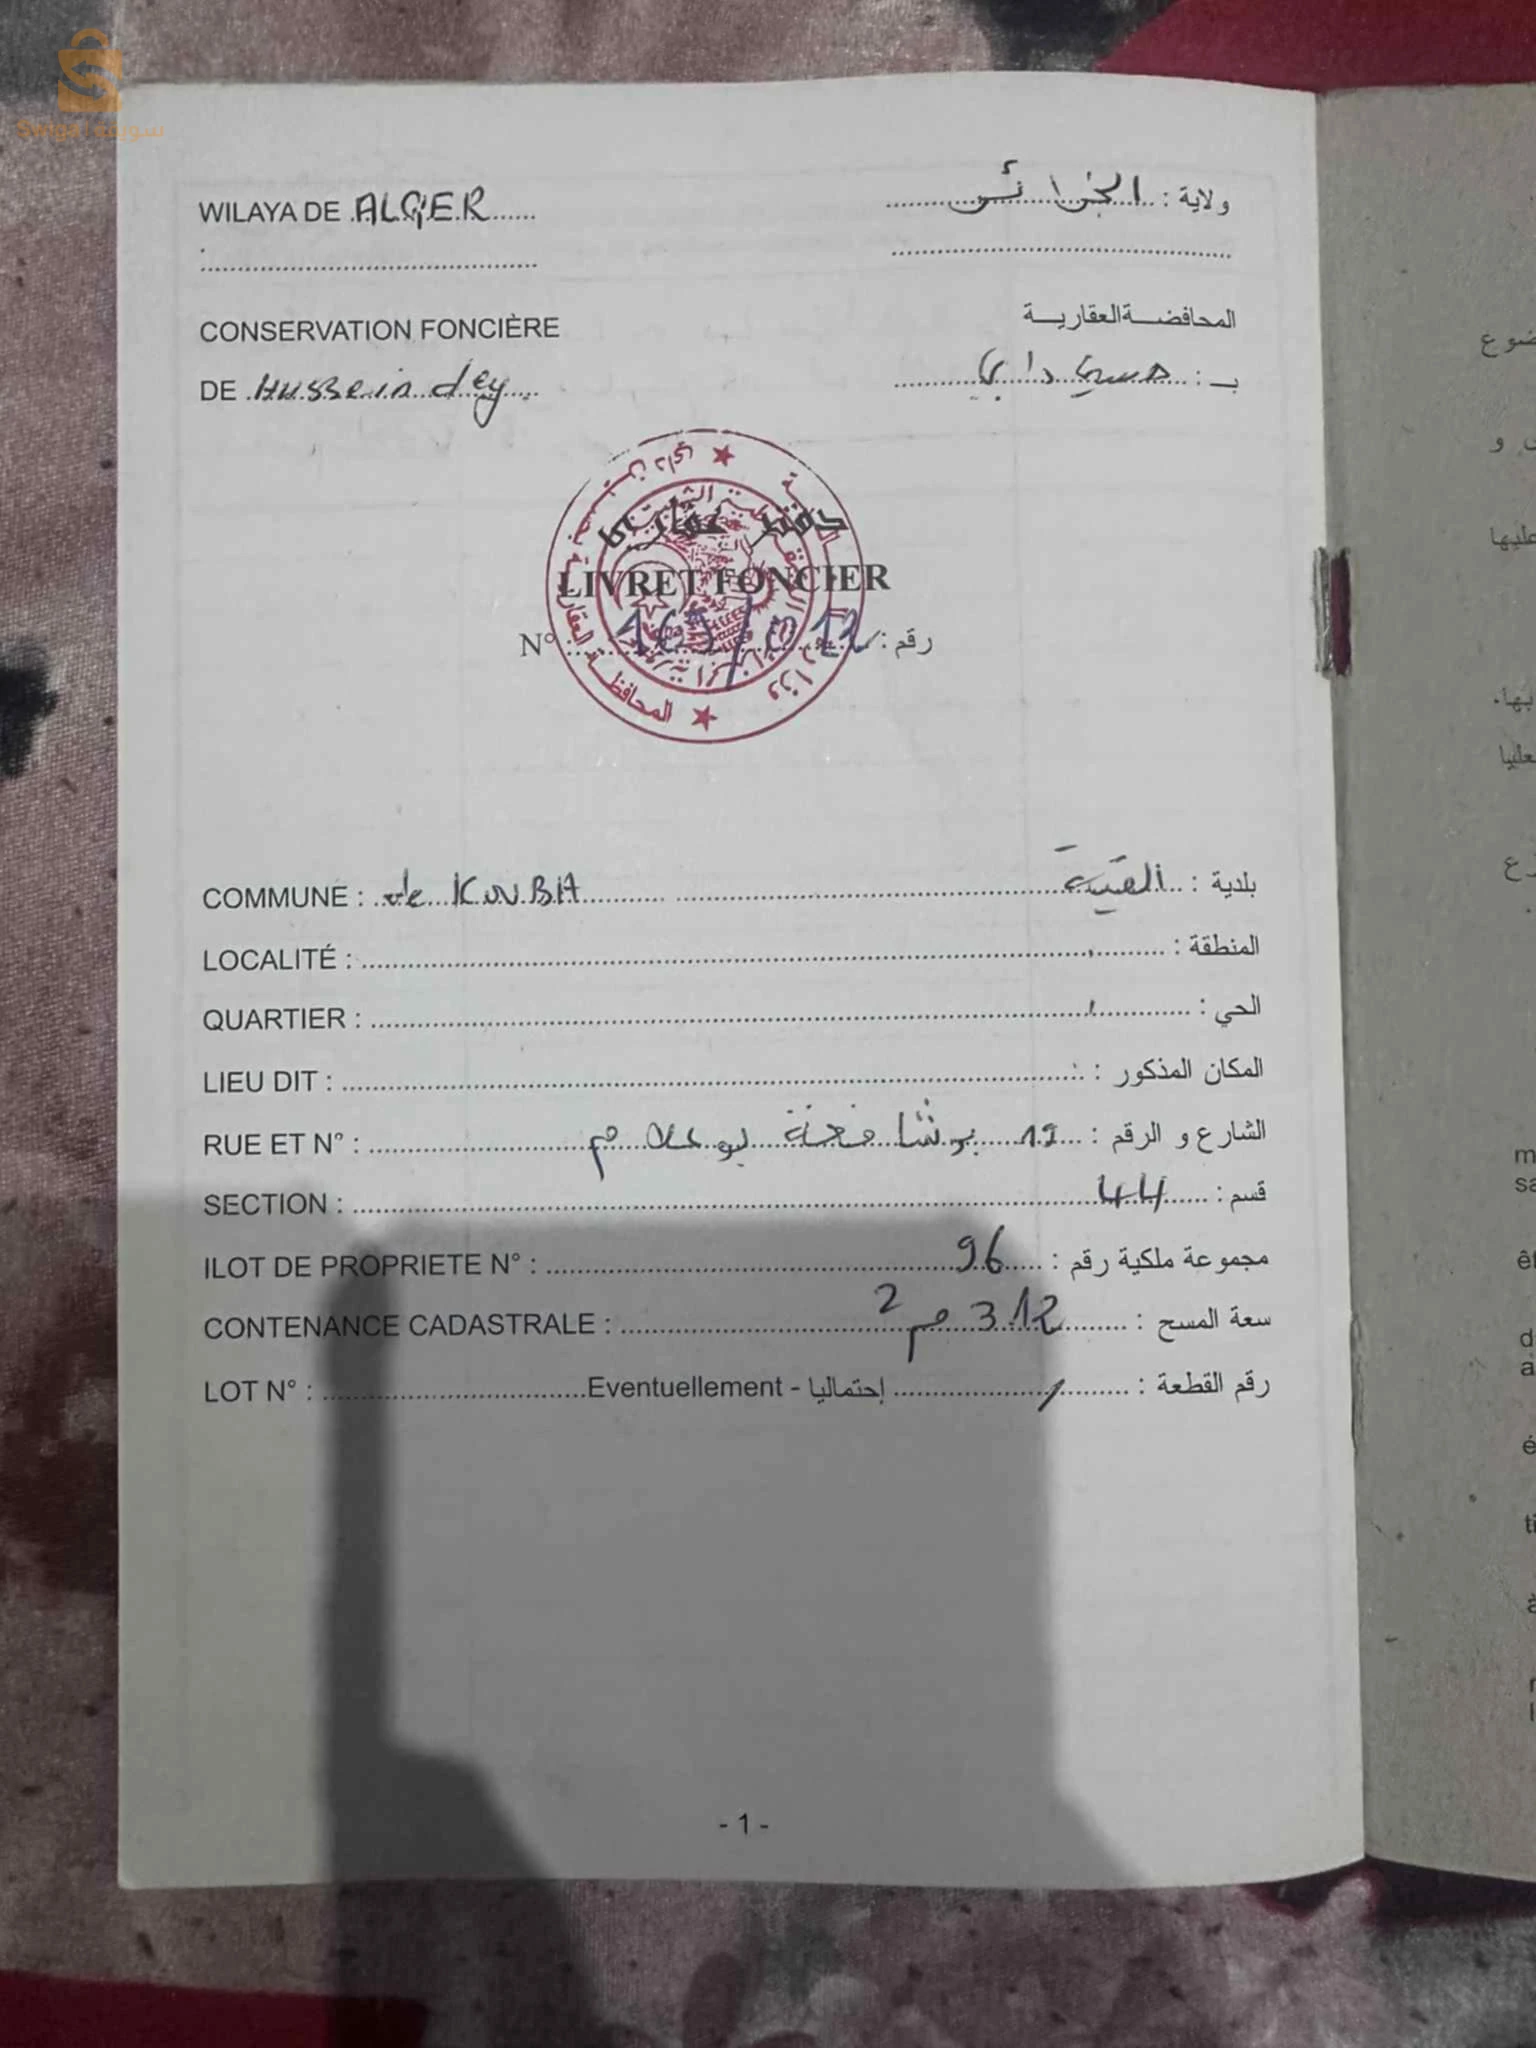 سويقة
WILAYA DE ALGER
ولاية : الجزائر
CONSERVATION FONCIÈRE
المحافضــة العقاريــة
DE Hussein dey
بـ : حسين داي
دفتر عقاري
LIVRET FONCIER
N° : رقم :
COMMUNE : de KOUBA بلدية : القبة
LOCALITÉ : المنطقة :
QUARTIER : الحي :
LIEU DIT : المكان المذكور :
RUE ET N° : الشارع و الرقم : 12 بوعلام
SECTION : قسم : 44
ILOT DE PROPRIETE N° : مجموعة ملكية رقم : 96
CONTENANCE CADASTRALE : سعة المسح : 312 م2
LOT N° : Eventuellement - إحتماليا رقم القطعة : /
- 1 -